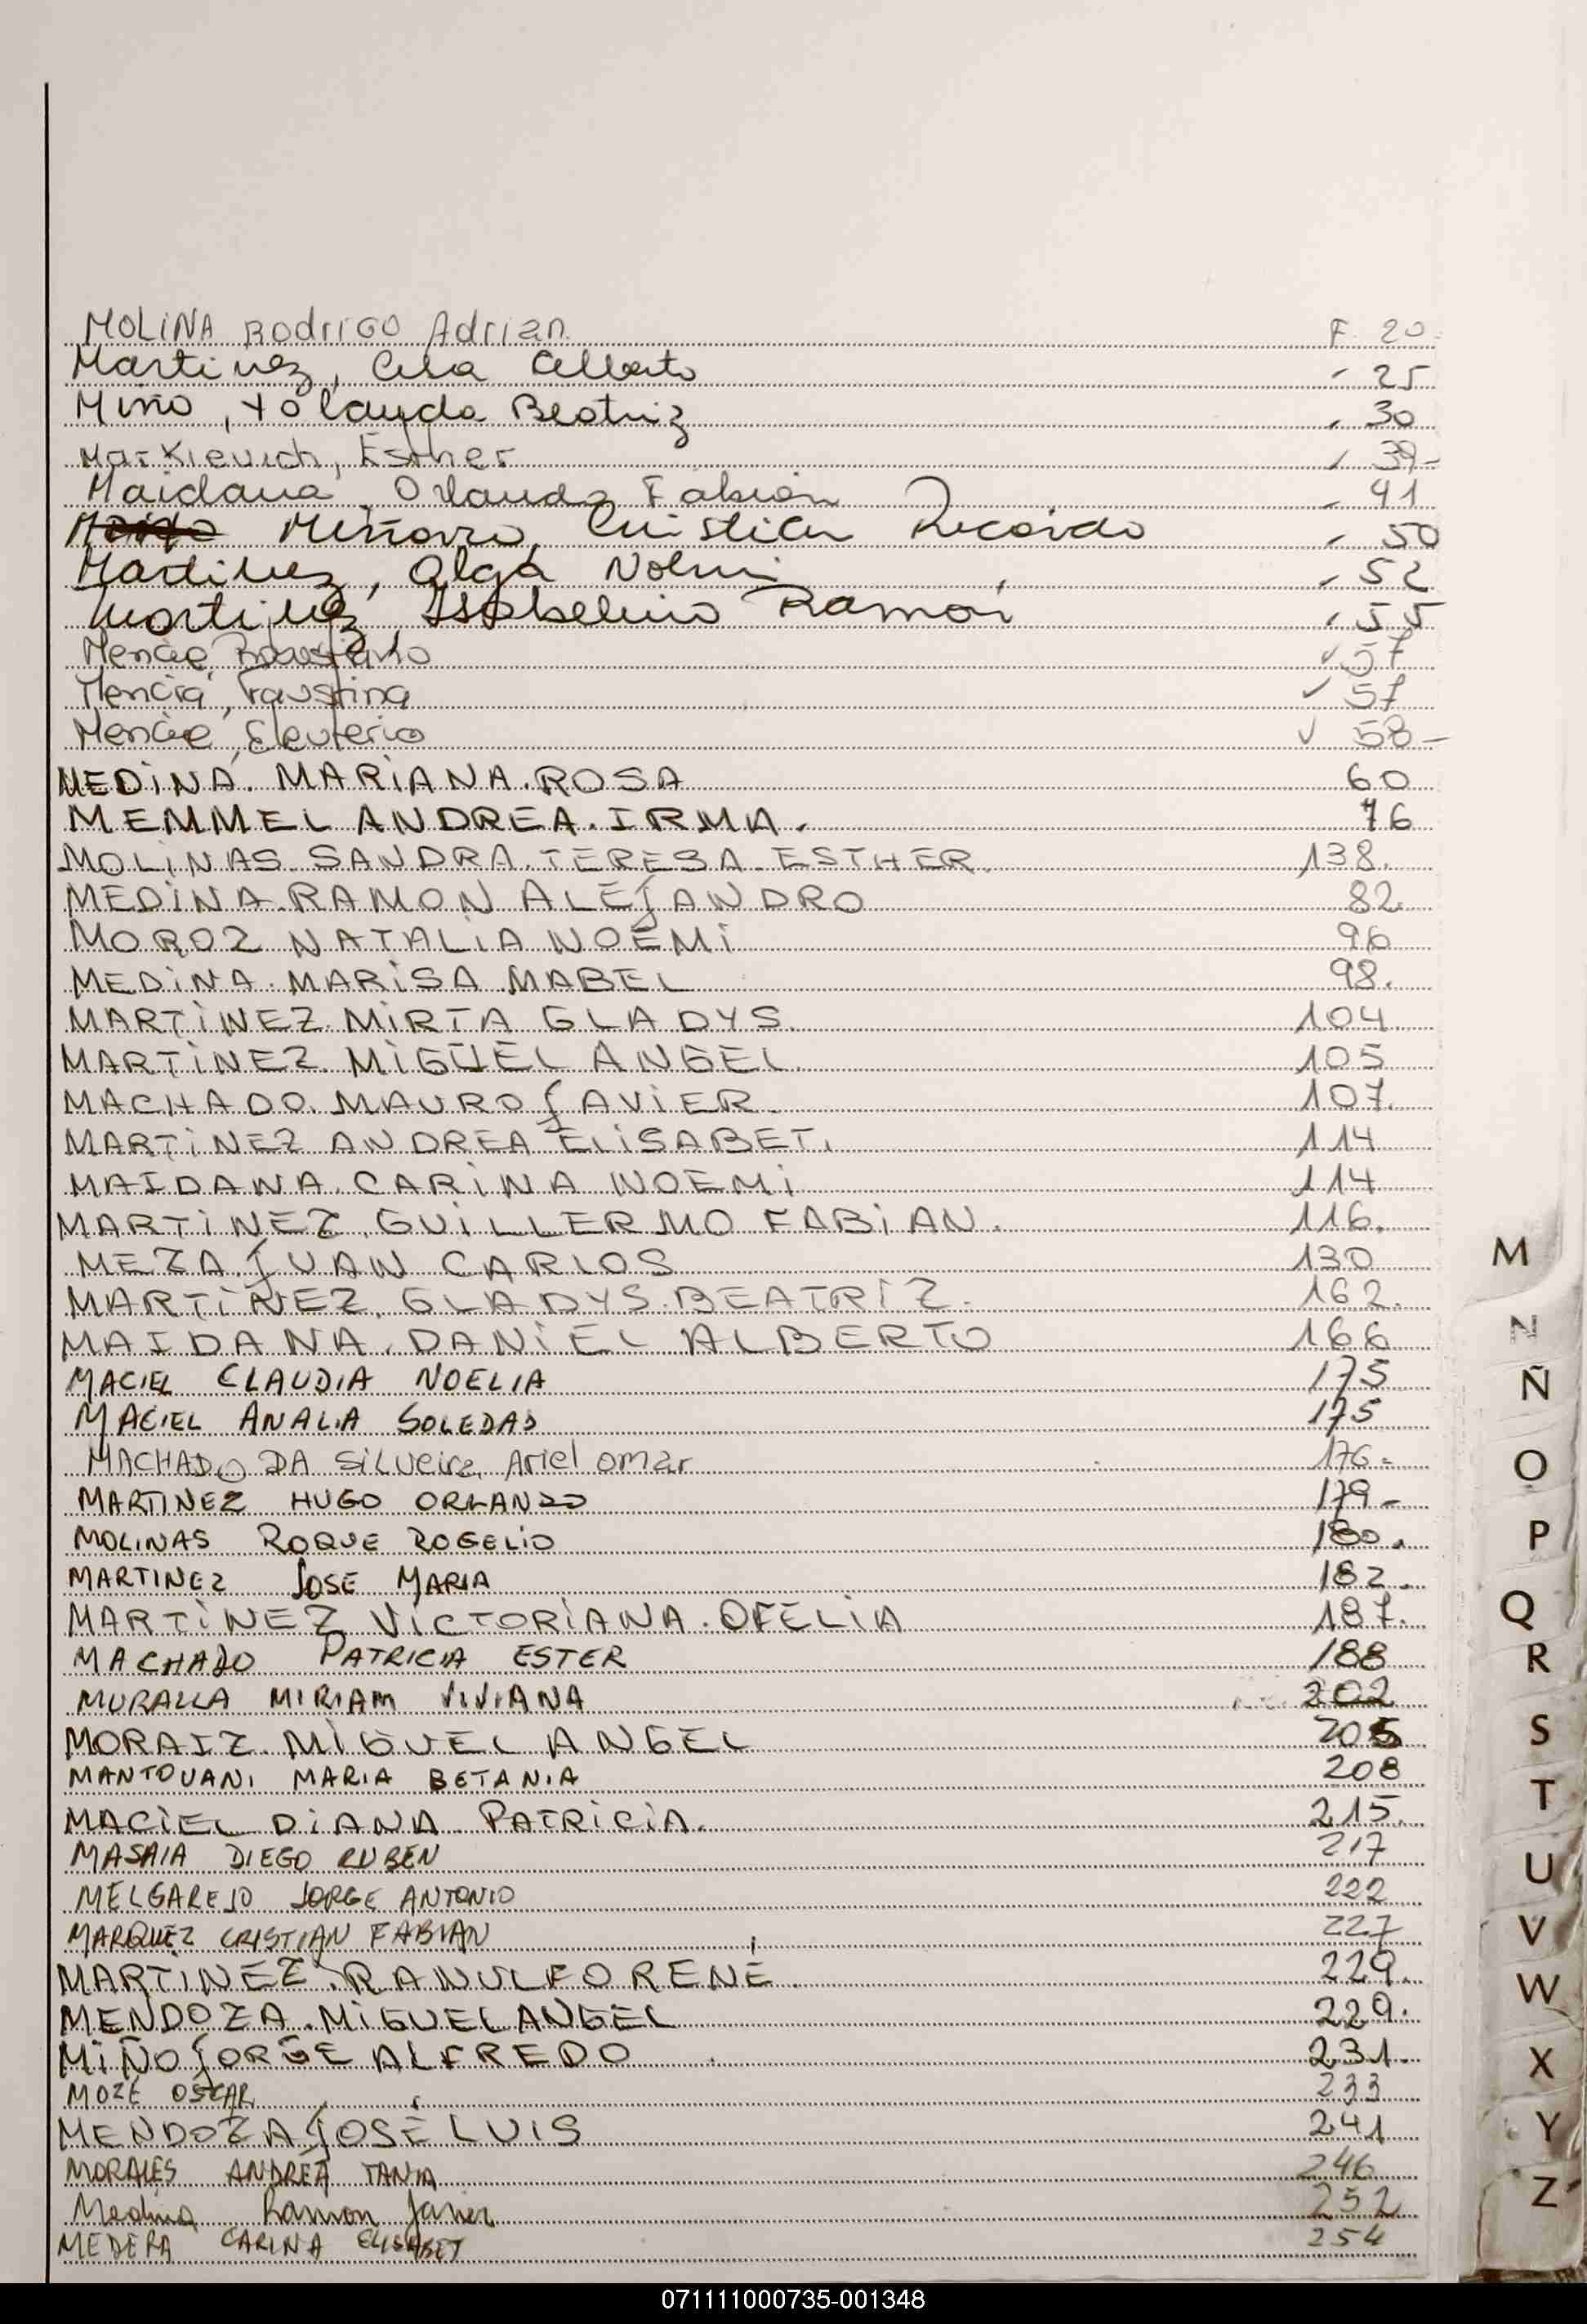 MOLINA RodriGO Adrian F. 20.
Martinez, Alberto 25
Miño, Yolanda Beatriz 30
Markievich, Esther 39-
Maidana, Orlando Fabian 41
Miñarro, Cristian Ricardo 50
Martinez, Olga Nohemi 52
Martinez Isabelino Ramon 55
Mencia 57
Mencia, Faustina 57
Mencia, Eleuterio 58-
MEDINA. MARIANA. ROSA 60
MEMMEL ANDREA. IRMA. 76
MOLINAS. SANDRA. TERESA. ESTHER. 138.
MEDINA. RAMON ALEJANDRO 82.
MOROZ NATALIA NOEMI 96
MEDINA. MARISA MABEL 98.
MARTINEZ. MIRTA GLADYS. 104
MARTINEZ. MIGUEL ANGEL 105
MACHADO. MAURO JAVIER. 107.
MARTINEZ ANDREA ELISABET. 114
MAIDANA. CARINA NOEMI 114
MARTINEZ. GUILLERMO FABIAN. 116.
MEZA. JUAN CARLOS 130
MARTINEZ. GLADYS. BEATRIZ. 162.
MAIDANA. DANIEL ALBERTO 166
MACIEL CLAUDIA NOELIA 175
MACIEL ANALIA SOLEDAD 175
MACHADO DA Silveira Ariel omar 176.
MARTINEZ HUGO ORLANDO 179-
MOLINAS ROQUE ROGELIO 180.
MARTINEZ JOSE MARIA 182.
MARTINEZ VICTORIANA. OFELIA 187.
MACHADO PATRICIA ESTER 188
MURALLA MIRIAM VIVIANA 202
MORAIZ. MIGUEL ANGEL 205
MANTOVANI MARIA BETANIA 208
MACIEL DIANA. PATRICIA. 215.
MASAIA DIEGO RUBEN 217
MELGAREJO JORGE ANTONIO 222
MARQUEZ CRISTIAN FABIAN 227
MARTINEZ. RANULFO RENE. 229.
MENDOZA. MIGUEL ANGEL 229.
MIÑO JORGE ALFREDO 231.
MOZE OSCAR 233
MENDOZA JOSE LUIS 241
MORALES ANDREA TANIA 246
Medina Ramon Javier 252
MEDERA CARINA ELISABET 254
M
N
Ñ
O
P
Q
R
S
T
U
V
W
X
Y
Z
071111000735-001348